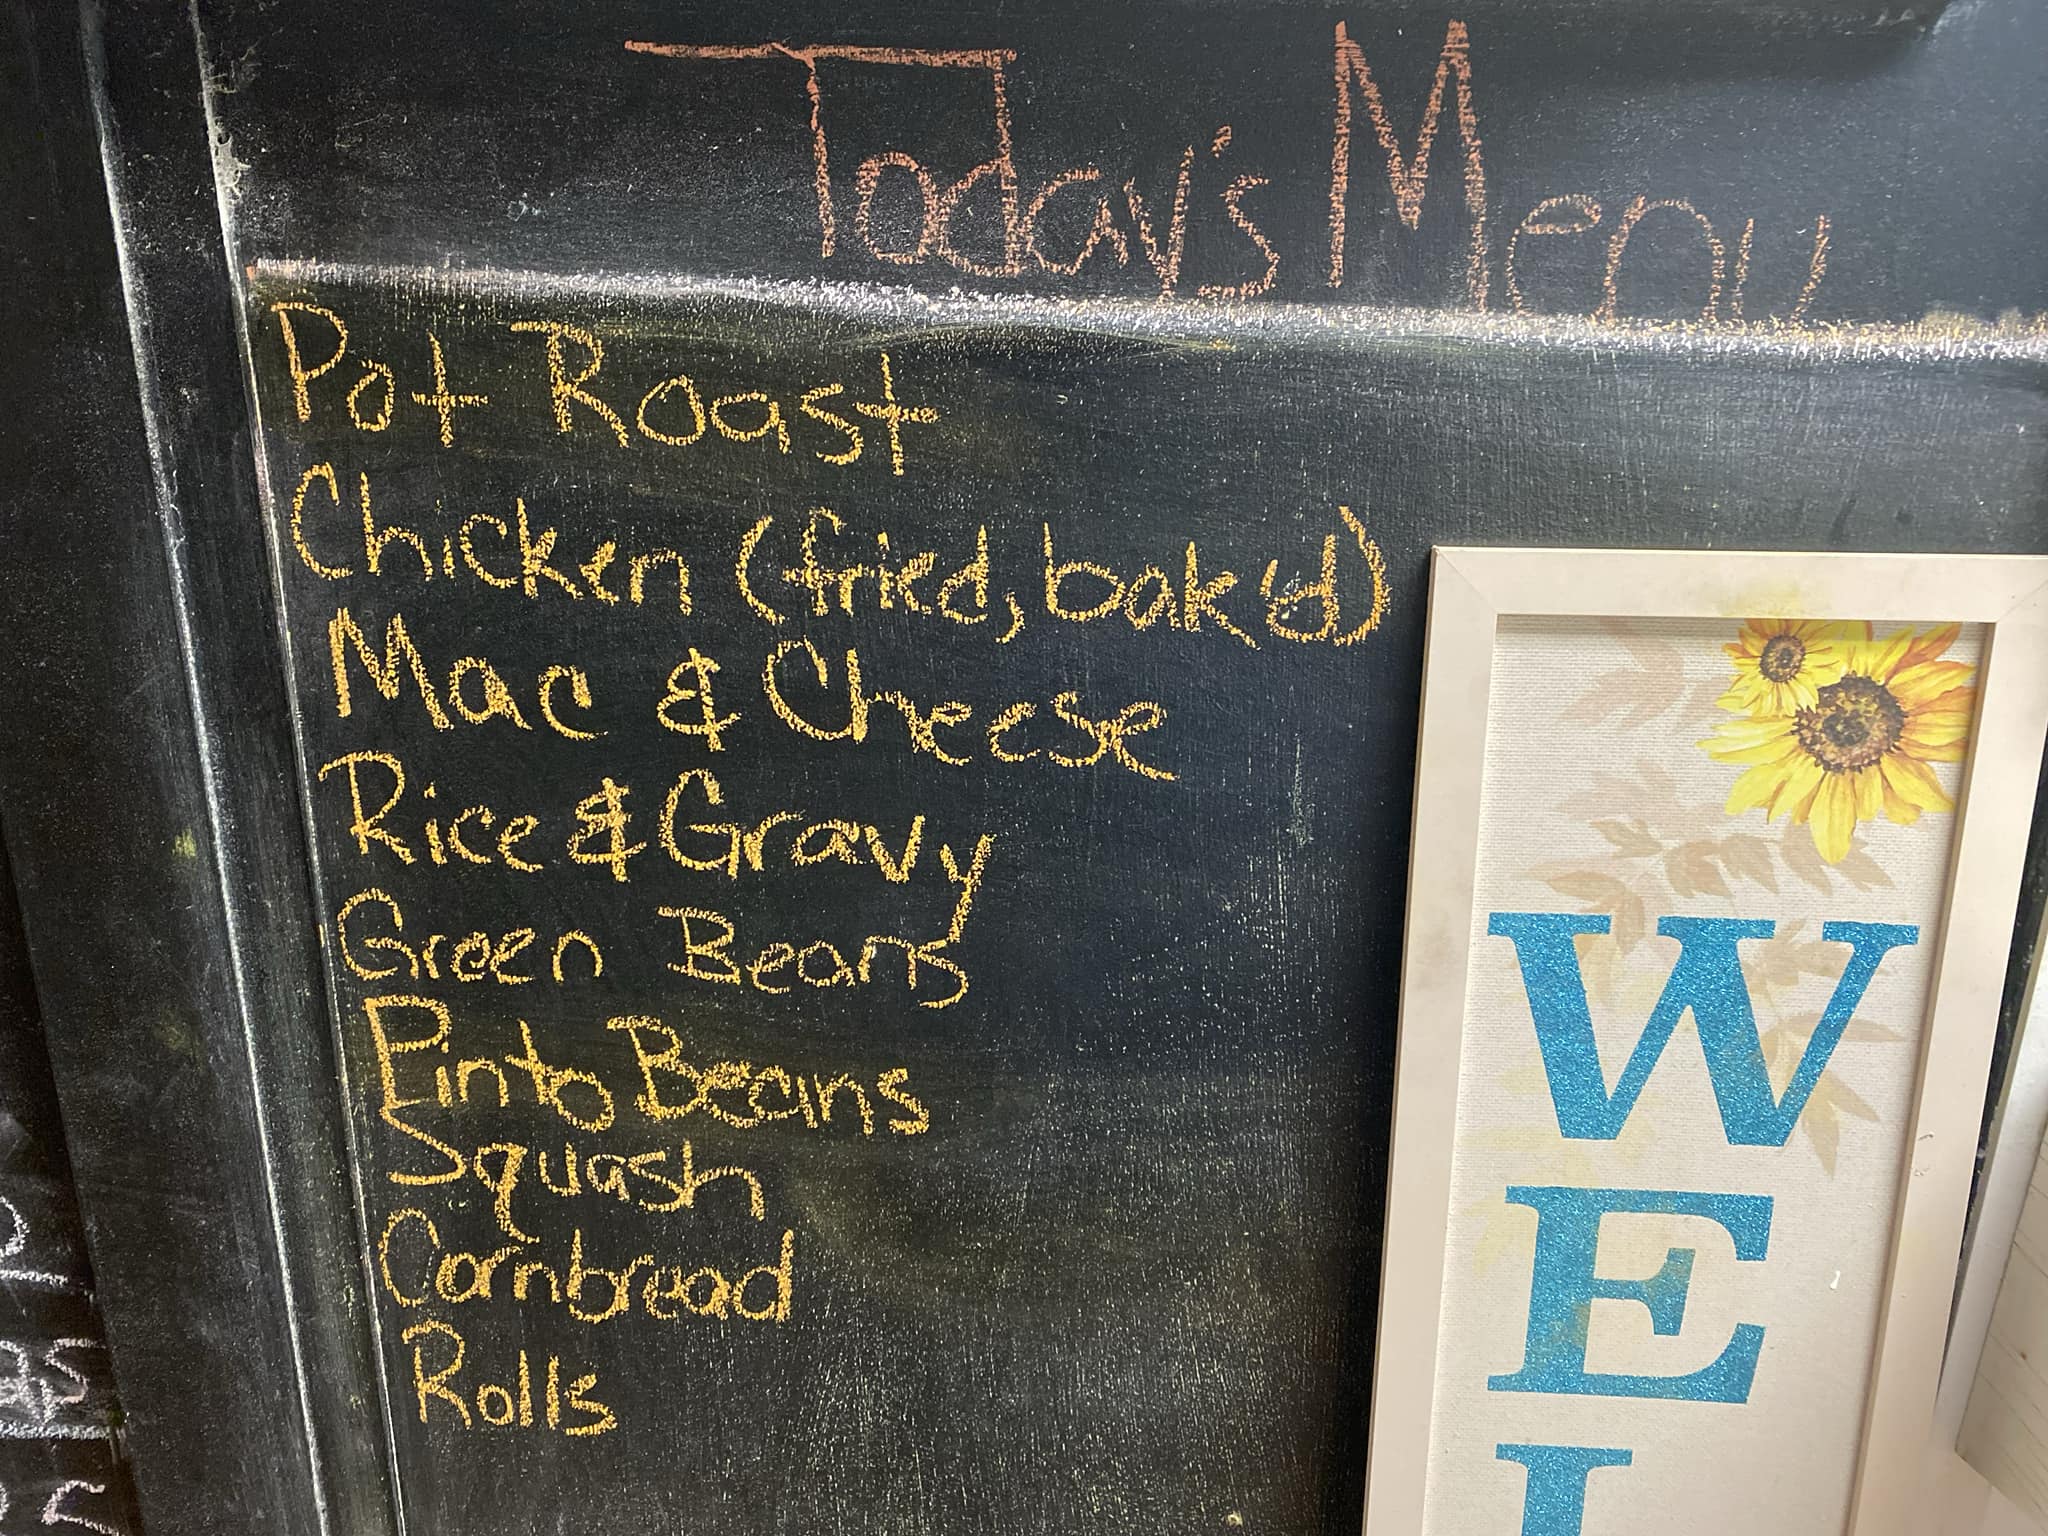 Today's Menu
Pot Roast
Chicken (fried, bak'd)
Mac & Cheese
Rice & Gravy
Green Beans
Pinto Beans
Squash
Cornbread
Rolls
W
E
L